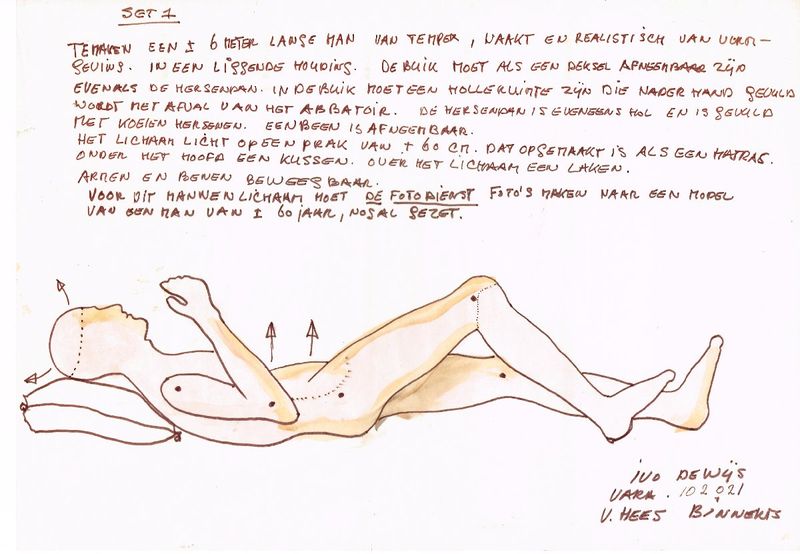 SET 1
TE MAKEN EEN ± 6 METER LANGE MAN VAN TEMPEX, NAAKT EN REALISTISCH VAN VORM-
GEVING. IN EEN LIGGENDE HOUDING. DE BUIK MOET ALS EEN DEKSEL AFNEEMBAAR ZIJN
EVENALS DE HERSENPAN. IN DE BUIK MOET EEN HOLLE RUIMTE ZIJN DIE NADERHAND GEVULD
WORDT MET AFVAL VAN HET ABBATOIR. DE HERSENPAN IS EVENEENS HOL EN IS GEVULD
MET KOEIEN HERSENEN. EEN BEEN IS AFNEEMBAAR.
HET LICHAAM LICHT OP EEN PRAK VAN ± 60 CM. DAT OPGEMAAKT IS ALS EEN MATRAS.
ONDER HET HOOFD EEN KUSSEN. OVER HET LICHAAM EEN LAKEN.
ARMEN EN BENEN BEWEEGBAAR.
VOOR DIT MANNENLICHAAM MOET DE FOTODIENST FOTO'S MAKEN NAAR EEN MODEL
VAN EEN MAN VAN ± 60 JAAR, NOGAL GEZET.
IVO DE WIJS
VARA. 102021
V. HEES BINNERTS